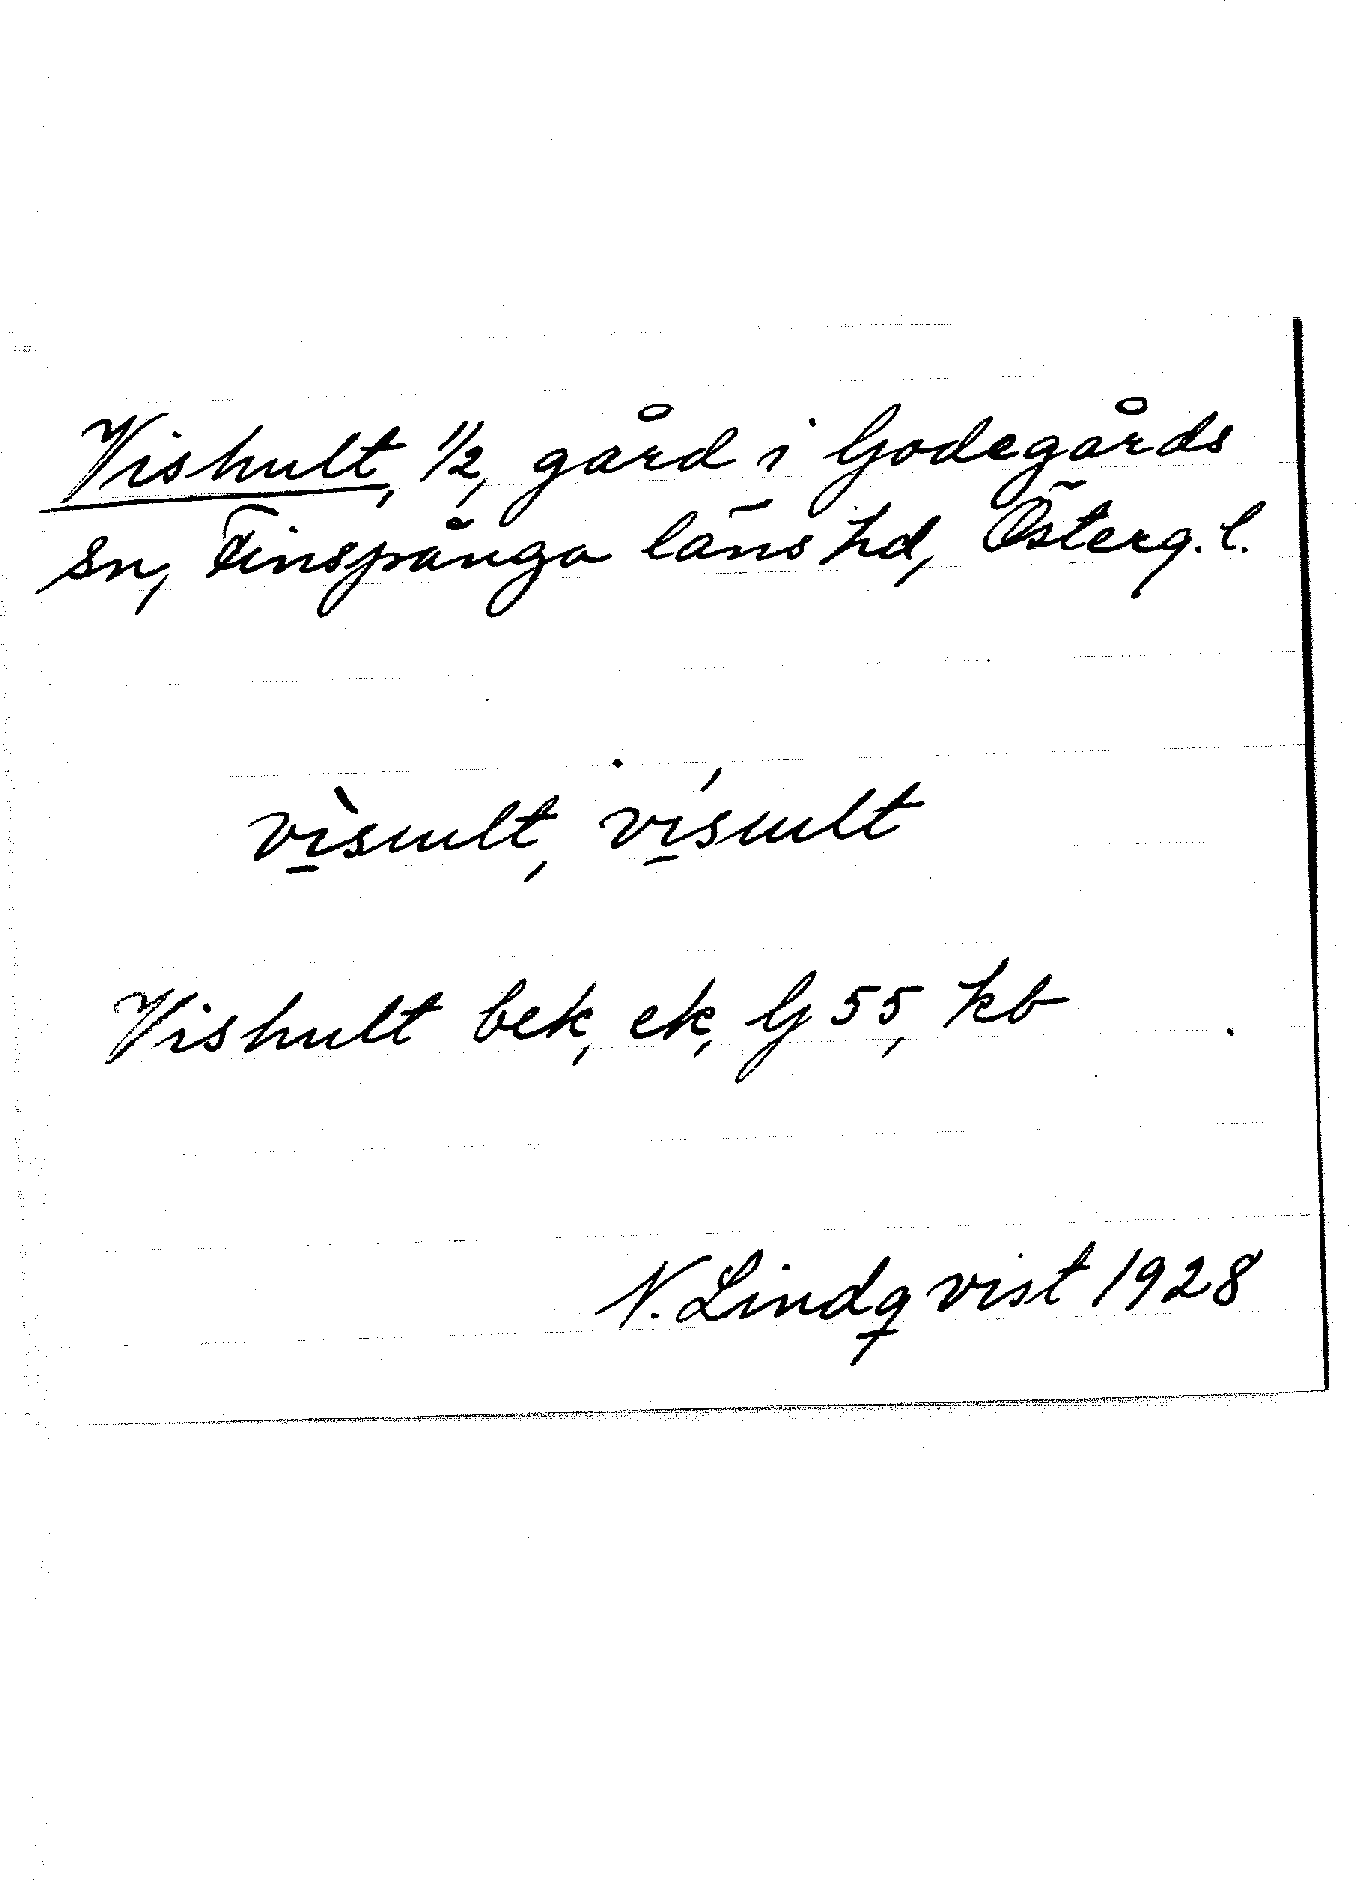 Vishult, 1/2, gård i Godegårds
sn, Finspånga läns hd, Österg. l.
vìsult, vísult
Vishult bek, ek, G 55, kb
N. Lindqvist 1928